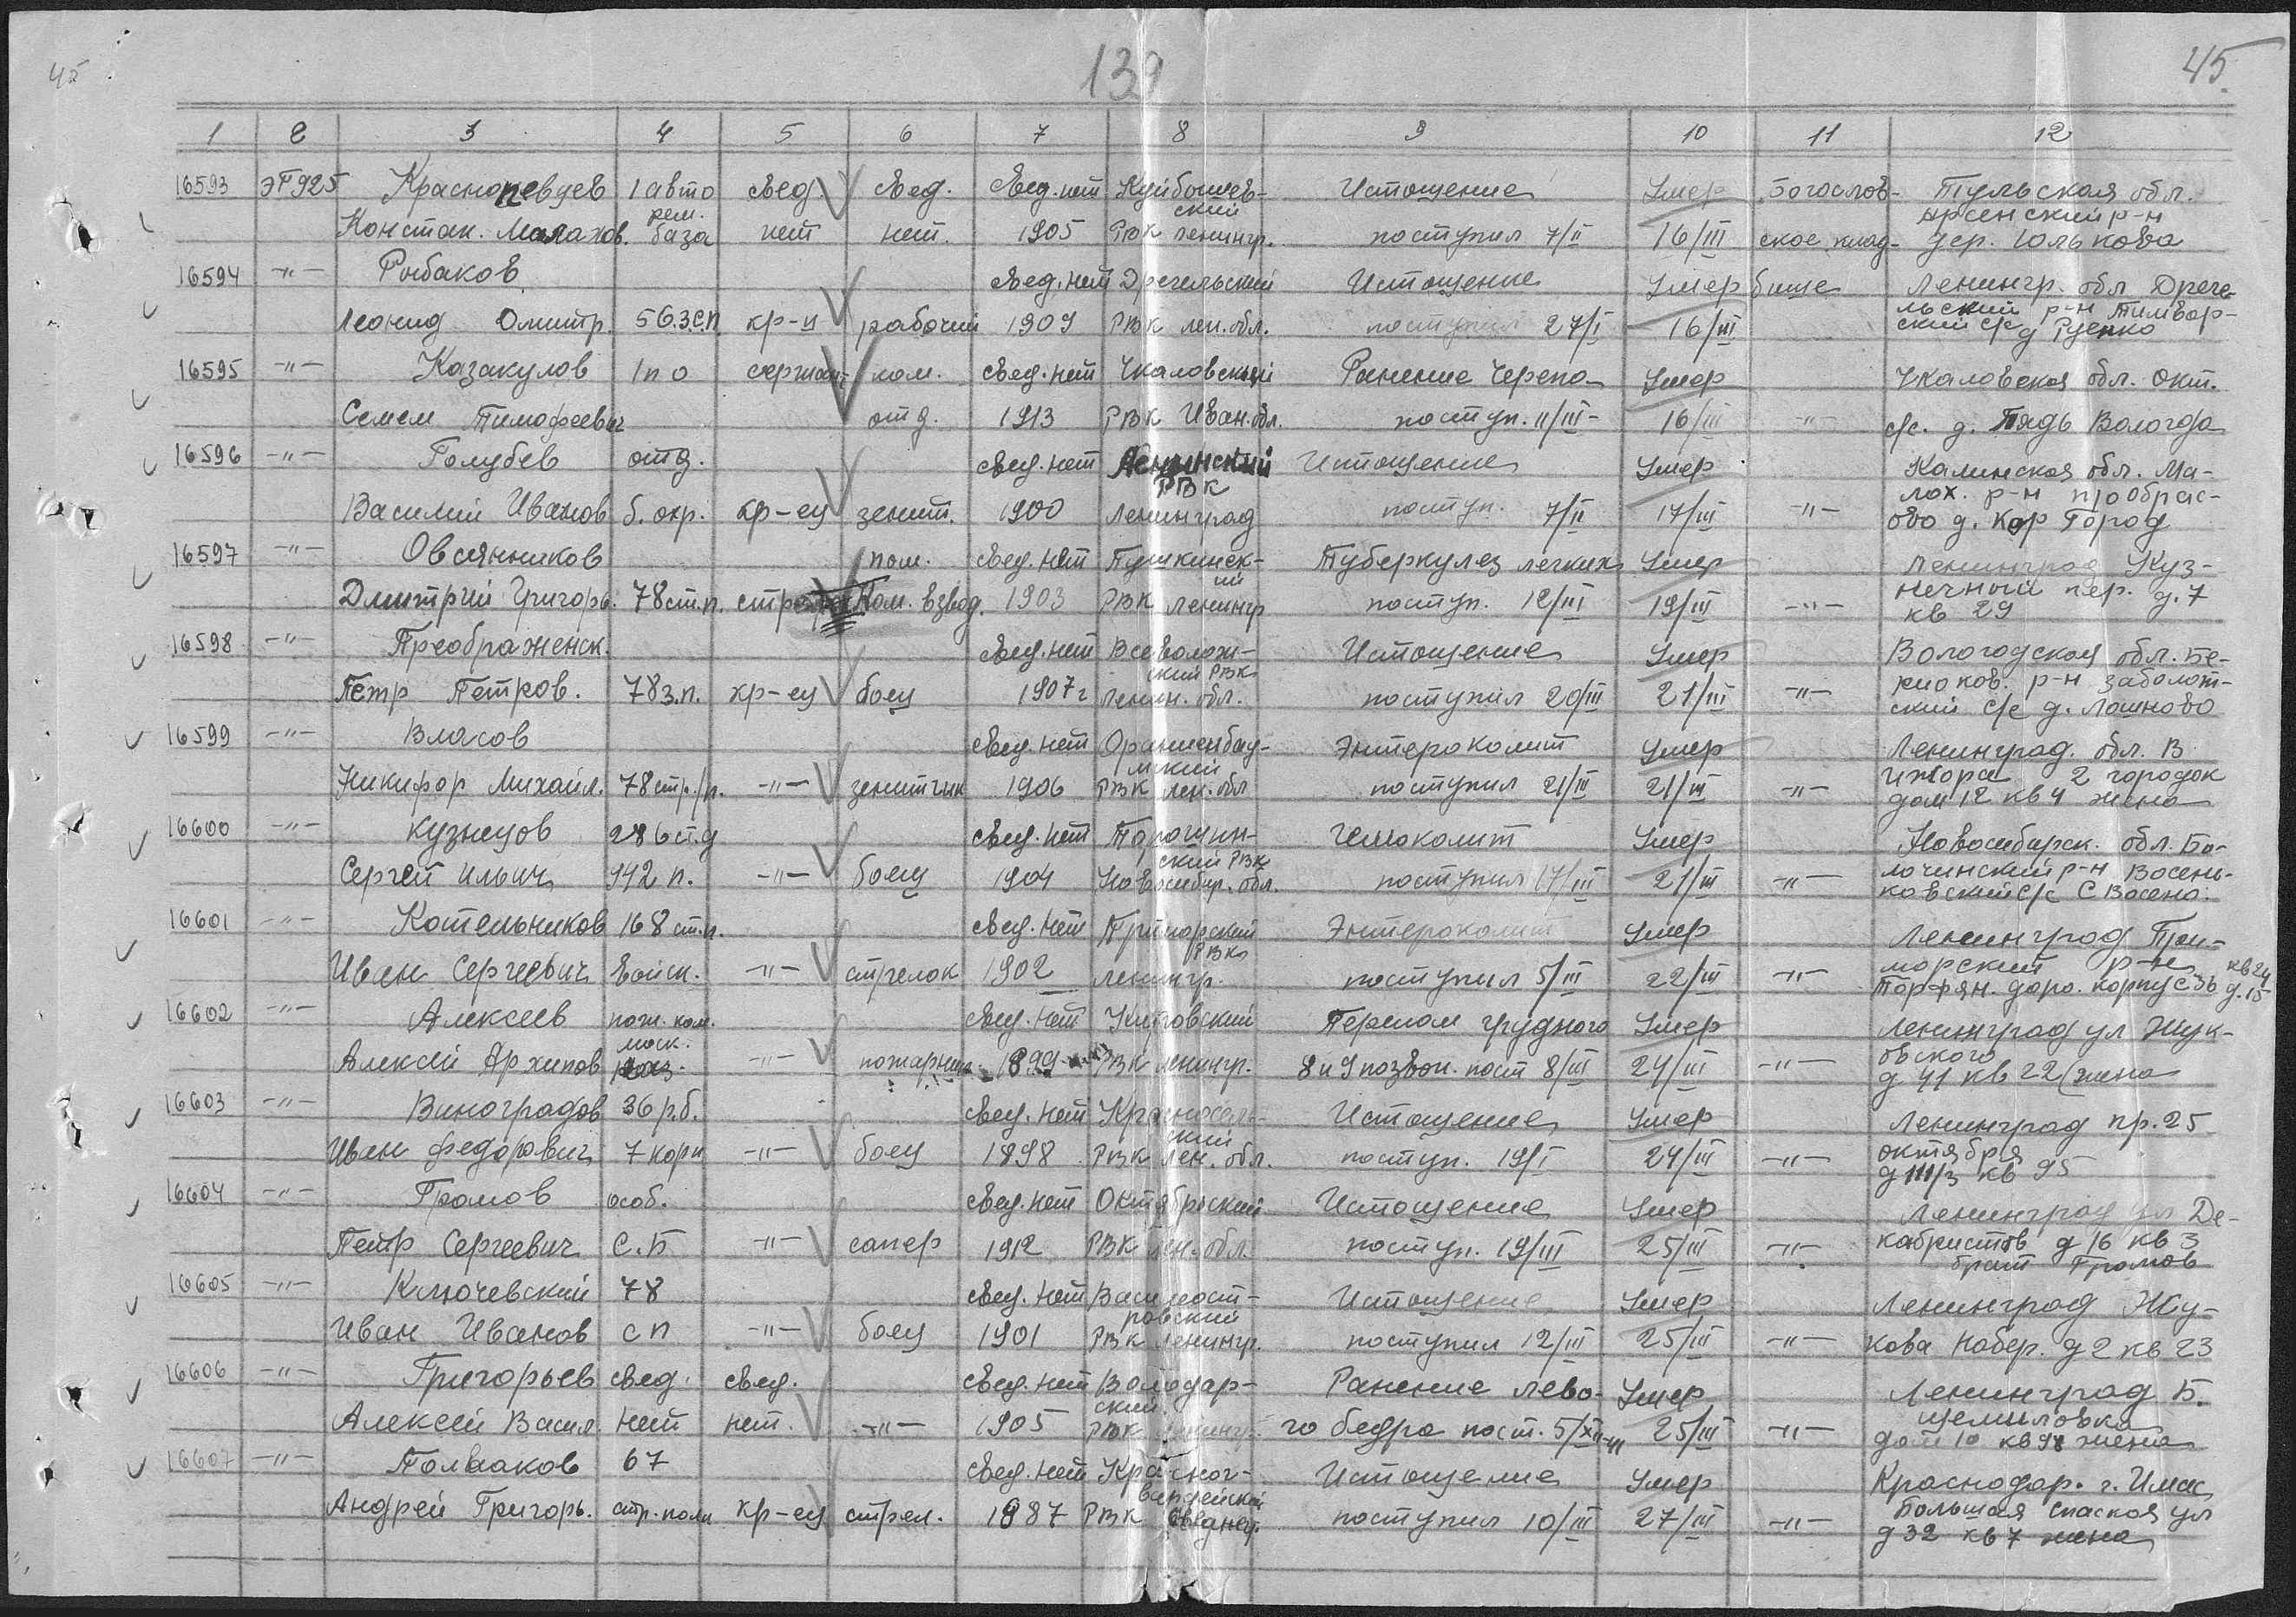 45 139 45.
1 2 3 4 5 6 7 8 9 10 11 12
16593 ЭГ925 Краснопевцев 1 авто свед. свед. свед. нет Куйбышев- Истощение Умер Богослов- Тульская обл.
рем. ский Арсенский р-н
Констан. Малахов. база нет нет. 1905 РВК ленингр. поступил 7/II 16/III ское клад- дер. Юлькова
16594 -"- Рыбаков свед. нет Дрегельский Истощение Умер бище Ленингр. обл Дреге-
льский р-н
Леонид Дмитр. 56.з.с.п. кр-ц рабочий 1909 РВК лен. обл. поступил 27/I 16/III ский с/с д
16595 -"- Казакулов 1 п о сержант ком. свед. нет Чкаловский Ранение черепа Умер Чкаловская обл. Окт.
Семем Тимофеевич отд. 1913 РВК Иван. обл. поступ. 11/III- 16/III -"- с/с. д. Пядь Вологда
16596 -"- Голубев отд. свед. нет Ленинский Истощение Умер Калинская обл. Ма-
РВК лох. р-н
Василий Иванов б. окр. кр-ец зенит. 1900 Ленинград поступ. 7/II 17/III -"- ово д. Город
16597 -"- Овсянников пом. свед. нет Пушкинск- Туберкулез легких Умер Ленинград Куз-
ий нечный пер. д. 7
Дмитрий Григорь. 78 ст.п. Пом. взвод. 1903 РВК Ленингр поступ. 12/III 19/III -"- кв 29
16598 -"- Преображенск. свед. нет Всеволож- Истощение Умер Вологодская обл. Бе-
ский РВК р-н заболот-
Петр Петров. 78 з.п. кр-ец боец 1907 г Ленин. обл. поступил 20/III 21/III -"- ский с/с д. Лошново
16599 -"- Власов свед. нет Ораниенбау- Энтероколит Умер Ленинград. обл. В
мский Ижора 2 городок
Никифор Михайл. 78 стр./п. -"- зенитчик 1906 РВК лен. обл поступил 21/III 21/III -"- дом 12 кв 4 жена
16600 -"- Кузнецов 286 ст.д свед. нет Гемоколит Умер Новосибирск. обл. Бо-
ский РВК лочинский р-н Восень-
Сергей Ильич 942 п. -"- боец 1904 Новосибир. обл. поступил 17/III 21/III -"- ковский с/с С Восено.
16601 -"- Котельников 168 ст.п. свед. нет Приморский Энтероколит Умер Ленинград При-
РВК морский р-н кв 24
Иван Сергеевич войск. -"- стрелок 1902 Ленингр. поступил 5/III 22/III -"- Торфян. доро. корпус 36 д. 15
16602 -"- Алексеев пож. ком. свед. нет Кировский Перелом грудного Умер Ленинград ул Жук-
моск. овского
Алексей Архипов -"- пожарник 1899 РВК ленингр. 8 и 9 позвон. пост 8/III 24/III -"- д 41 кв 22 (жена
16603 -"- Виноградов 36 р.б. свед. нет Красносель- Истощение Умер Ленинград пр. 25
ский октября
Иван Федорович 7 корп -"- боец 1898 РВК лен. обл. поступ. 19/I 24/III -"- д 111/3 кв 95
16604 -"- Громов особ. свед. нет Октябрьский Истощение Умер Ленинград ул Де-
кабристов д 16 кв 3
Петр Сергеевич С.Б -"- сапер 1912 РВК лен. обл. поступ. 19/III 25/III -"- брат Громов
16605 -"- Ключевский 78 свед. нет Василеост- Истощение Умер Ленинград Жу-
ровский
Иван Иванов с п -"- боец 1901 РВК Ленингр. поступил 12/III 25/III -"- кова Набер. д 2 кв 23
16606 -"- Григорьев свед. свед. свед. нет Володар- Ранение лево- Умер Ленинград Б.
ский щемиловка
Алексей Васил. нет нет. -"- 1905 РВК Ленингр. го бедра пост. 5/XII-41 25/III -"- дом 10 кв 98 жена
16607 -"- Полваков 67 свед. нет Красног- Истощение Умер Краснодар. г. Имас
вардейский Большая спаская ул
Андрей Григорь. стр. полк кр-ец стрел. 1987 РВК свед нет. поступил 10/III 27/III -"- д 32 кв 7 жена